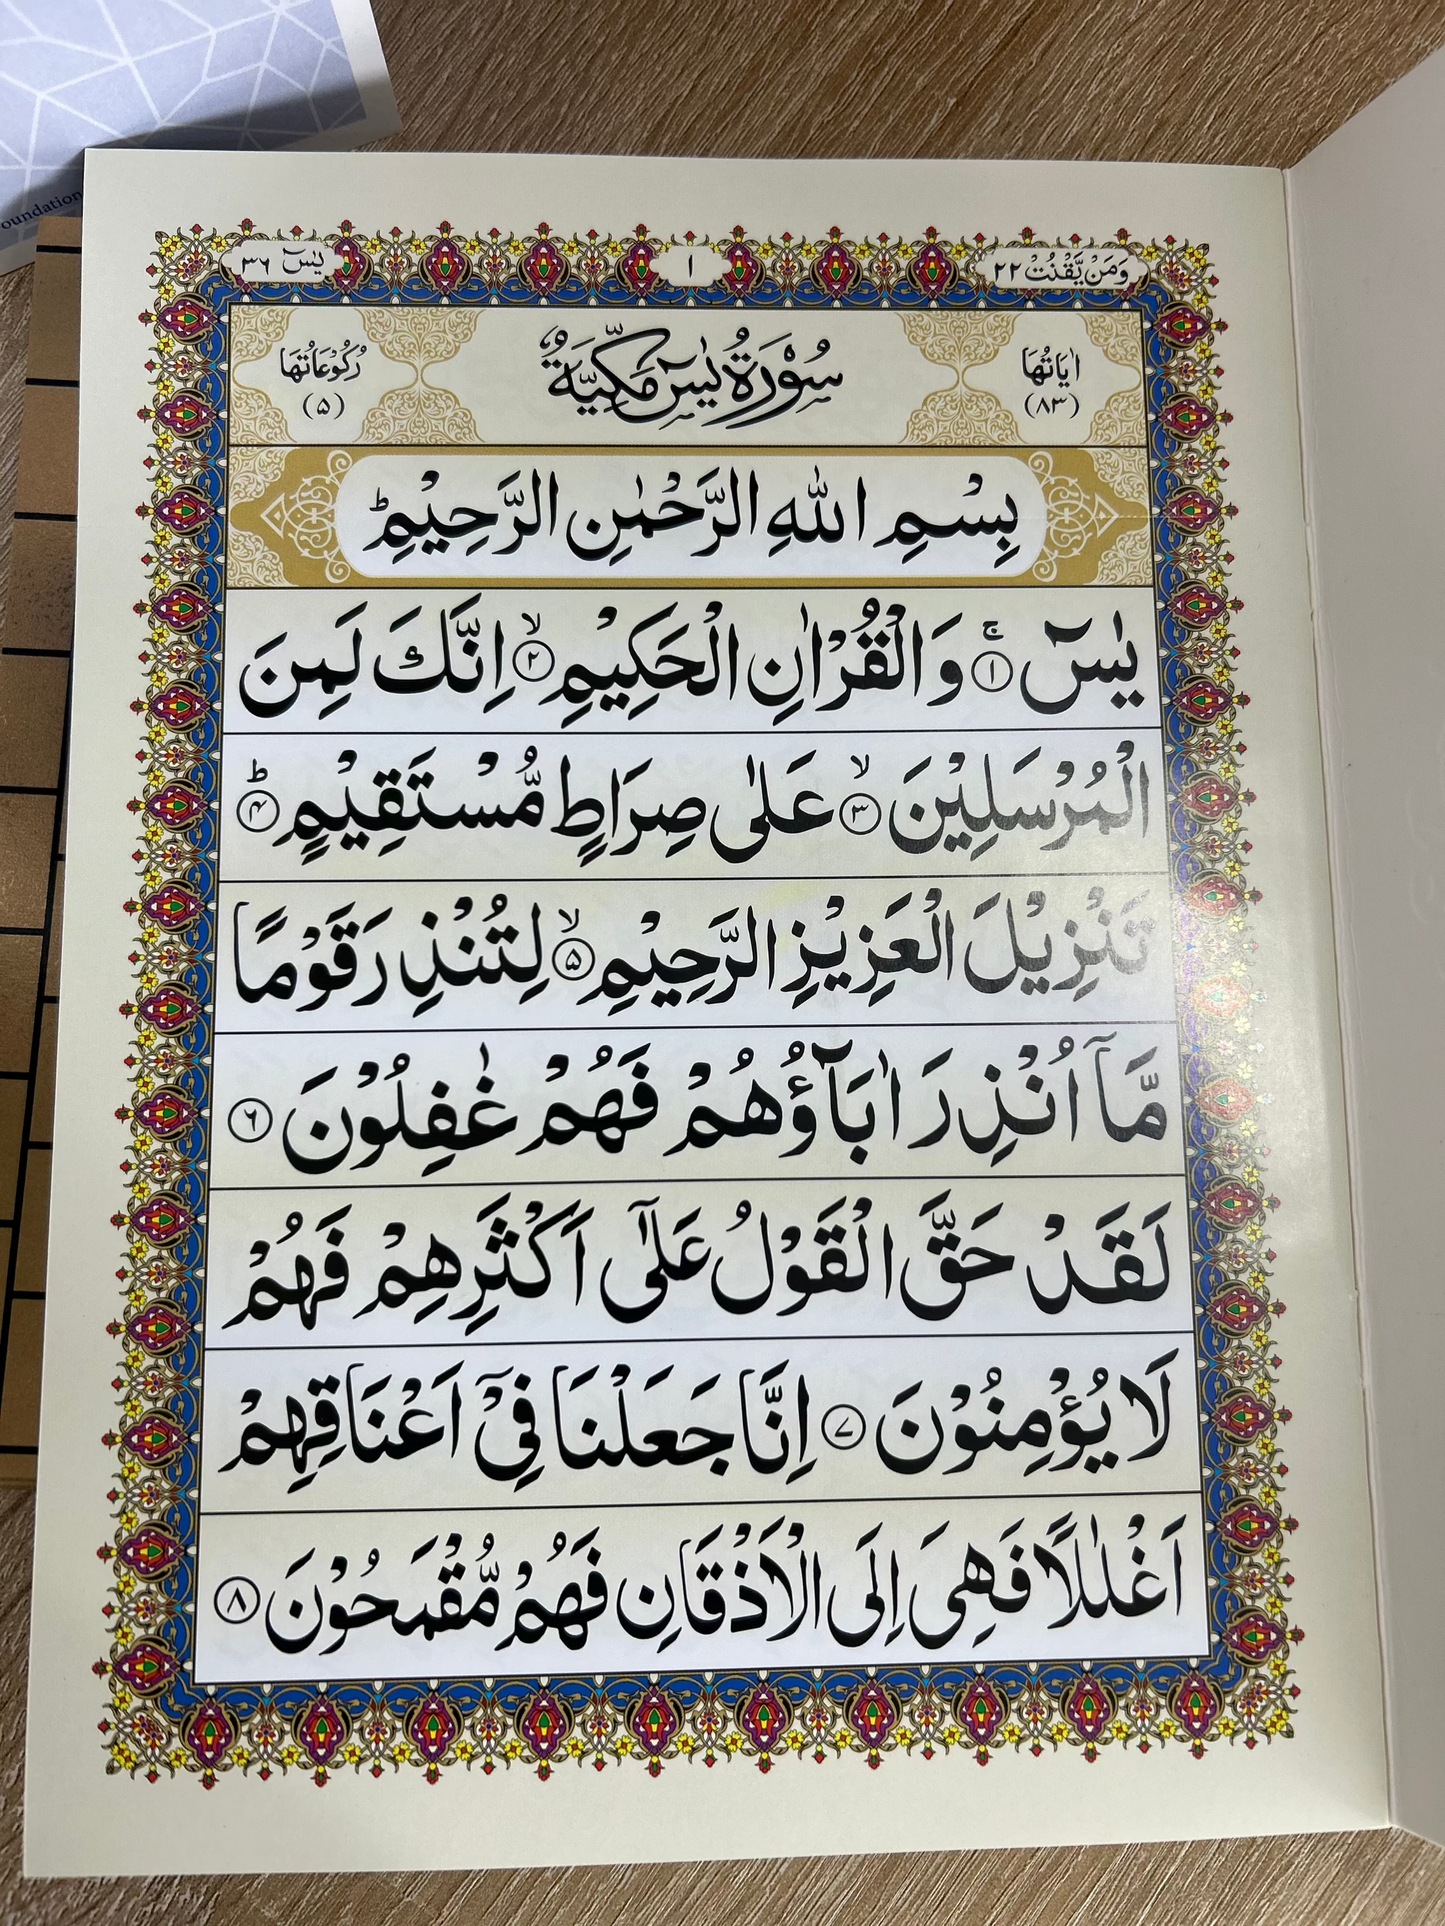 oundation
وَمَنْ يَّقْنُتْ ٢٢
١
يٰسٓ ٣٦
اٰيَاتُهَا
(٨٣)
سُوْرَةُ يٰسٓ مَكِّيَّةٌ
رُكُوْعَاتُهَا
(۵)
بِسْمِ اللّٰهِ الرَّحْمٰنِ الرَّحِيْمِ ؕ
يٰسٓ ۚ ﴿١﴾ وَالْقُرْاٰنِ الْحَكِيْمِ ۙ ﴿٢﴾ اِنَّكَ لَمِنَ
الْمُرْسَلِيْنَ ۙ ﴿٣﴾ عَلٰى صِرَاطٍ مُّسْتَقِيْمٍ ؕ ﴿۴﴾
تَنْزِيْلَ الْعَزِيْزِ الرَّحِيْمِ ۙ ﴿۵﴾ لِتُنْذِرَ قَوْمًا
مَّاۤ اُنْذِرَ اٰبَآؤُهُمْ فَهُمْ غٰفِلُوْنَ ﴿۶﴾
لَقَدْ حَقَّ الْقَوْلُ عَلٰۤى اَكْثَرِهِمْ فَهُمْ
لَا يُؤْمِنُوْنَ ﴿۷﴾ اِنَّا جَعَلْنَا فِيْۤ اَعْنَاقِهِمْ
اَغْلٰلًا فَهِىَ اِلَى الْاَذْقَانِ فَهُمْ مُّقْمَحُوْنَ ﴿٨﴾